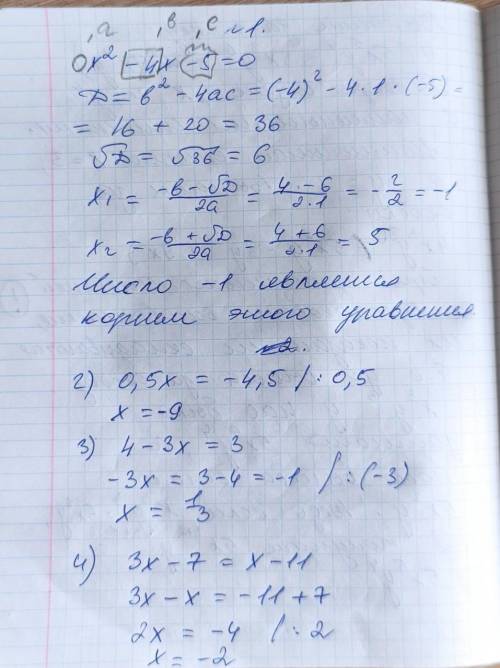 , а , в , с №1.
0x² -4x -5 = 0
D = в² - 4ас = (-4)² - 4·1·(-5) =
= 16 + 20 = 36
√D = √36 = 6
x₁ = (-в - √D)/2a = (4 - 6)/2·1 = -2/2 = -1
x₂ = (-в + √D)/2a = (4 + 6)/2·1 = 5
Число -1 является
корнем этого уравнения.
2) 0,5x = -4,5 / : 0,5
x = -9
3) 4 - 3x = 3
-3x = 3 - 4 = -1 / : (-3)
x = 1/3
4) 3x - 7 = x - 11
3x - x = -11 + 7
2x = -4 / : 2
x = -2